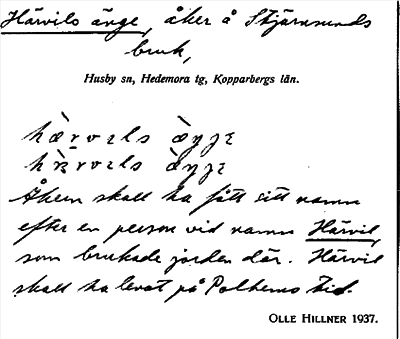 Härvils änge, åker å Stjärnsunds
bruk,
Husby sn, Hedemora tg, Kopparbergs län.
Åkern skall ha fått sitt namn
efter en person vid namn Härvil,
som brukade jorden där. Härvil
skall ha levat på Polhems tid.
OLLE HILLNER 1937.